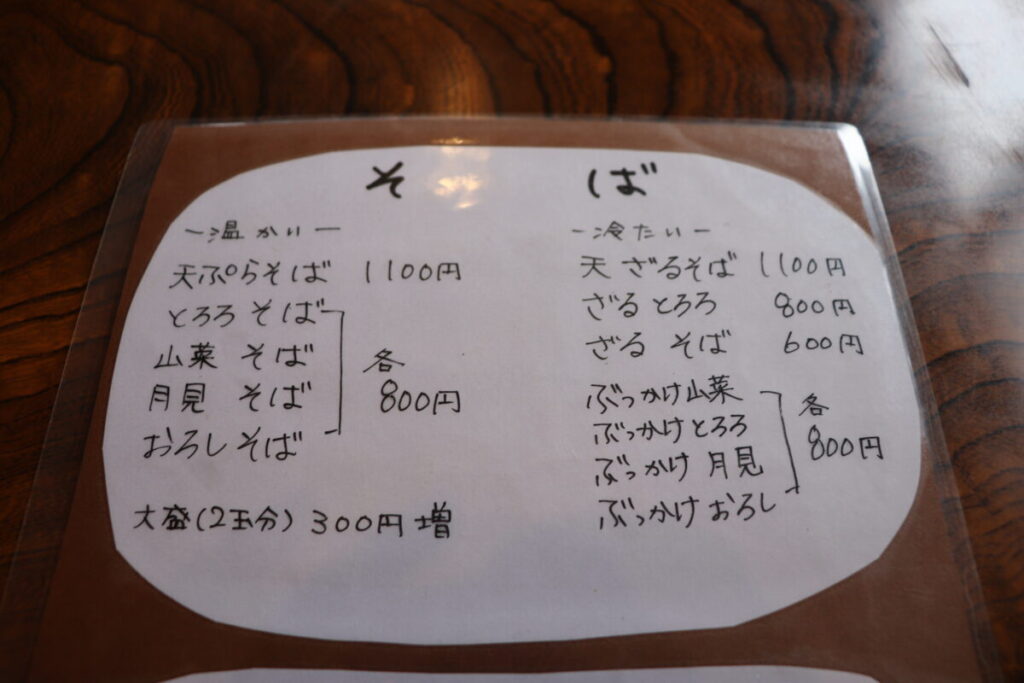 そば
ー温かいー
天ぷらそば 1100円
とろろそば
山菜そば
月見そば
おろしそば
各
800円
大盛(2玉分) 300円増
ー冷たいー
天ざるそば 1100円
ざるとろろ 800円
ざるそば 600円
ぶっかけ山菜
ぶっかけとろろ
ぶっかけ月見
ぶっかけおろし
各
800円